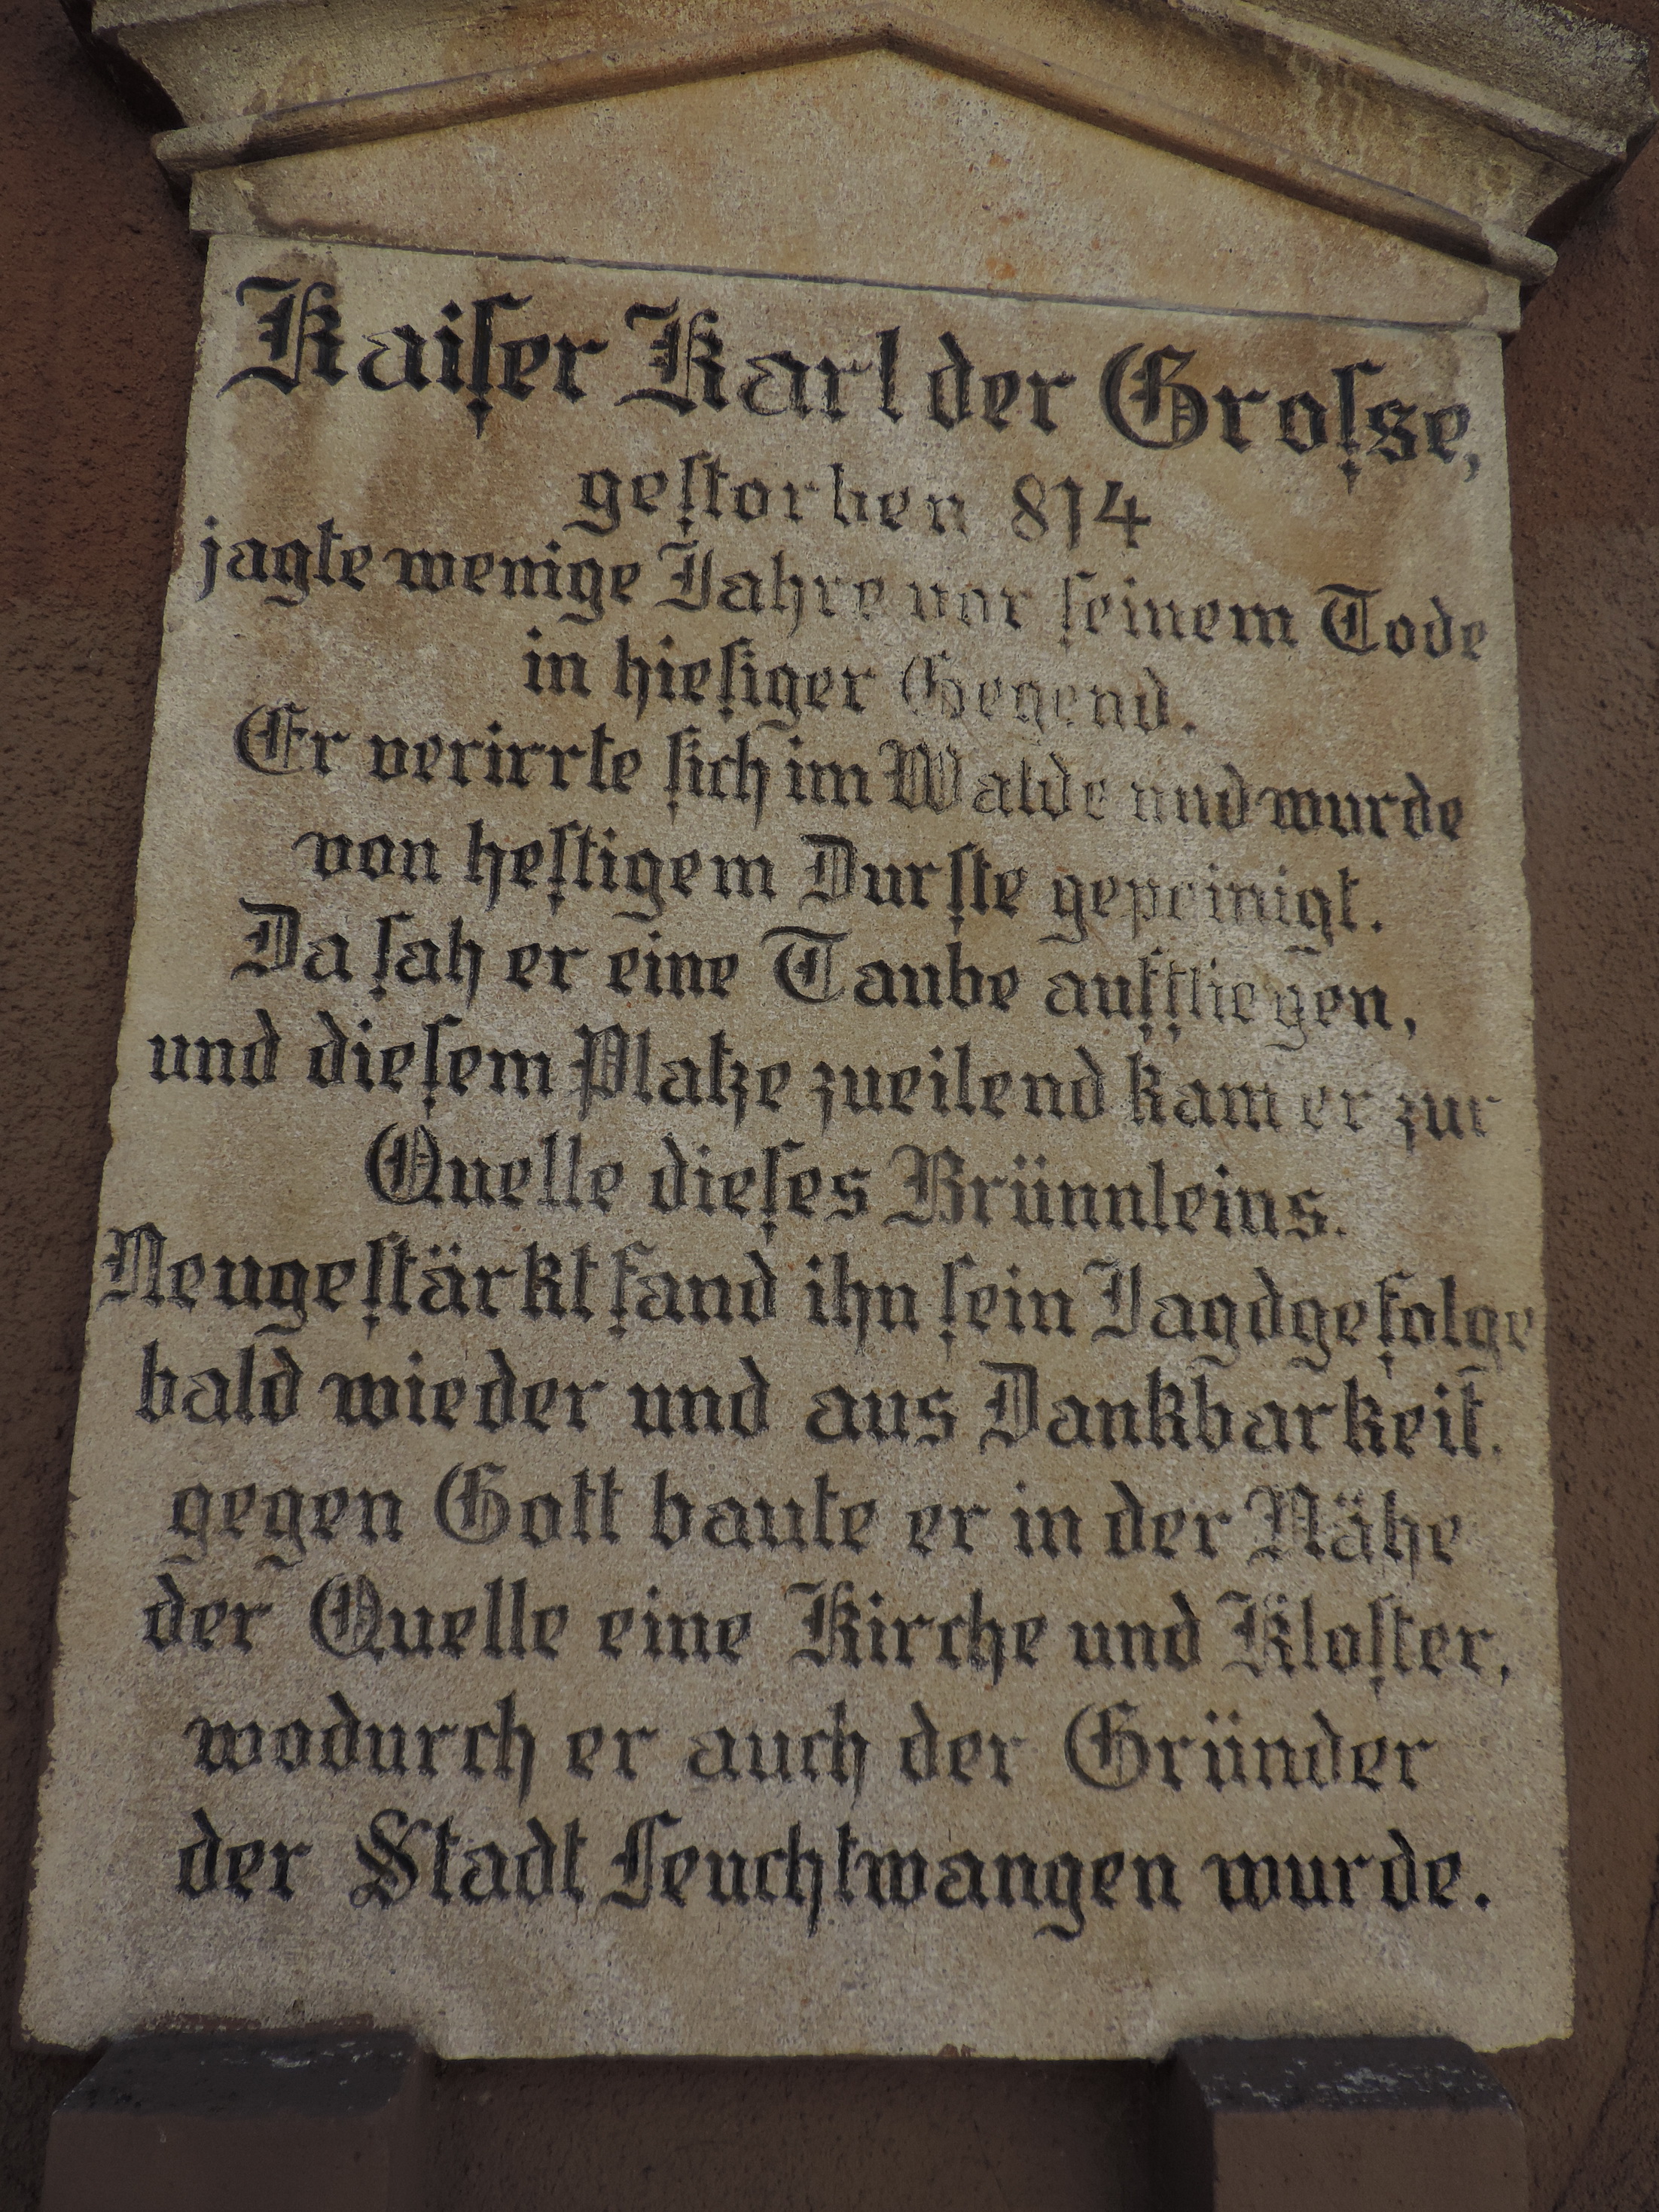 Kaiſer Karl der Groſse,
geſtorben 814
jagte wenige Jahre vor ſeinem Tode
in hieſiger Gegend.
Er verirrte ſich im Walde und wurde
von heftigem Durſte gepeinigt.
Da ſah er eine Taube auffliegen,
und dieſem Platze zueilend kam er zur
Quelle dieſes Brünnleins.
Neugeſtärkt fand ihn ſein Jagdgefolge
bald wieder und aus Dankbarkeit.
gegen Gott baute er in der Nähe
der Quelle eine Kirche und Kloſter,
wodurch er auch der Gründer
der Stadt Feuchtwangen wurde.